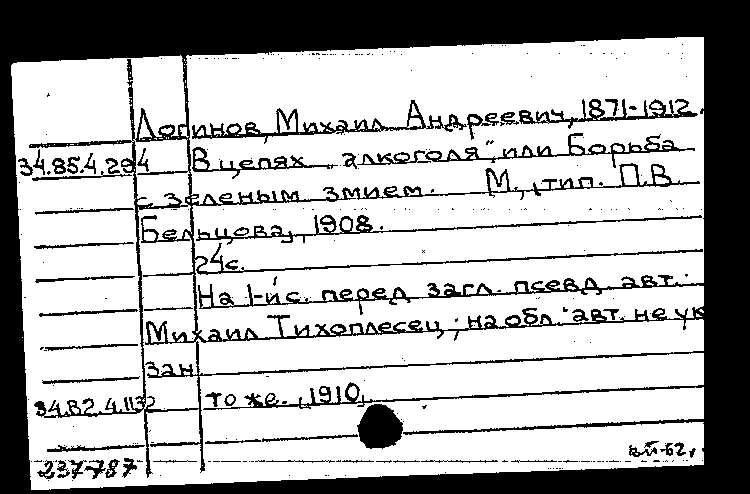 Логинов, Михаил Андреевич, 1871-1912.
34.85.4.294 В цепях „алкоголя", или Борьба
с зеленым змием. М., тип. П.В.
Бельцова, 1908.
24с.
На 1-й с. перед загл. псевд. авт.:
Михаил Тихоплесец; на обл. авт. не ук
зан
34.82.4.1132 то же. 1910.
237-787